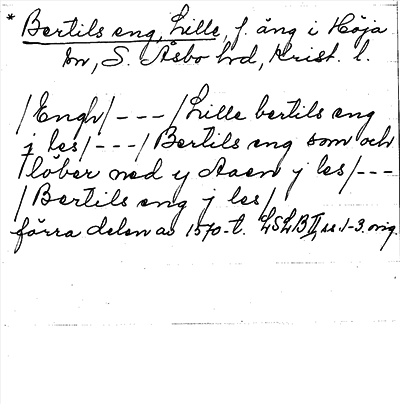 * Bertils eng, Lille, f. äng i Höja
sn, S. Åsbo hd, Krist. l.
/Engh/---/Lille bertils eng
j les/---/Bertils eng som och
löber ned y Aaen j les/---
/Bertils eng j les/
förra delen av 1570-t. LSLB II, ss. 1-3. orig.